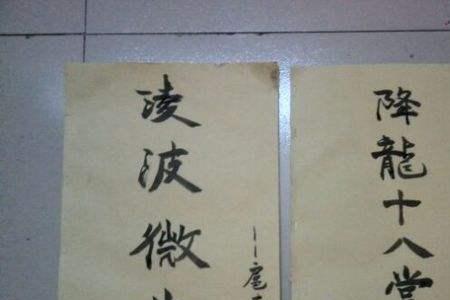 降龍十八掌
淩波微